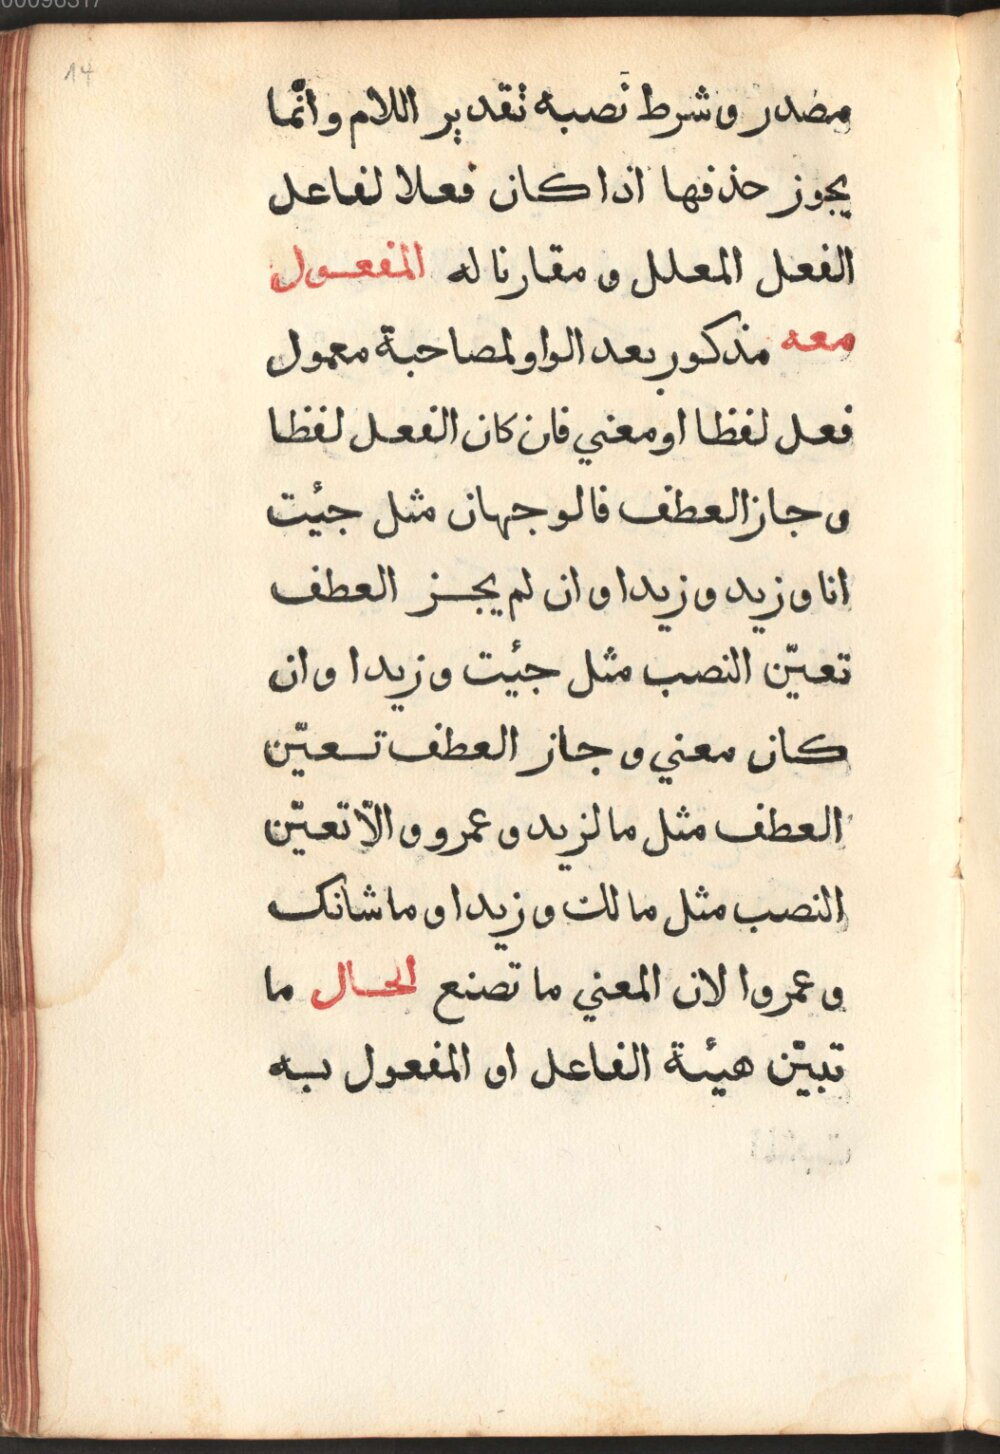 00096317
14
مصدر وشرط نَصبه تقدير اللام وانّما
يجوز حذفها اذا كان فعلا لفاعل
الفعل المعلل ومقارنا له المفعول
معه مذكور بعد الواو لمصاحبة معمول
فعل لفظا او معني فان كان الفعل لفظا
وجاز العطف فالوجهان مثل جئيت
انا وزيد وزيدا وان لم يجز العطف
تعيّن النصب مثل جئيت وزيدا وان
كان معني وجاز العطف تعيّن
العطف مثل ما لزيد وعمرو والّا تعيّن
النصب مثل مالك وزيدا وما شانك
وعمروا لان المعني ما تصنع الحال ما
تبيّن هيئة الفاعل او المفعول به